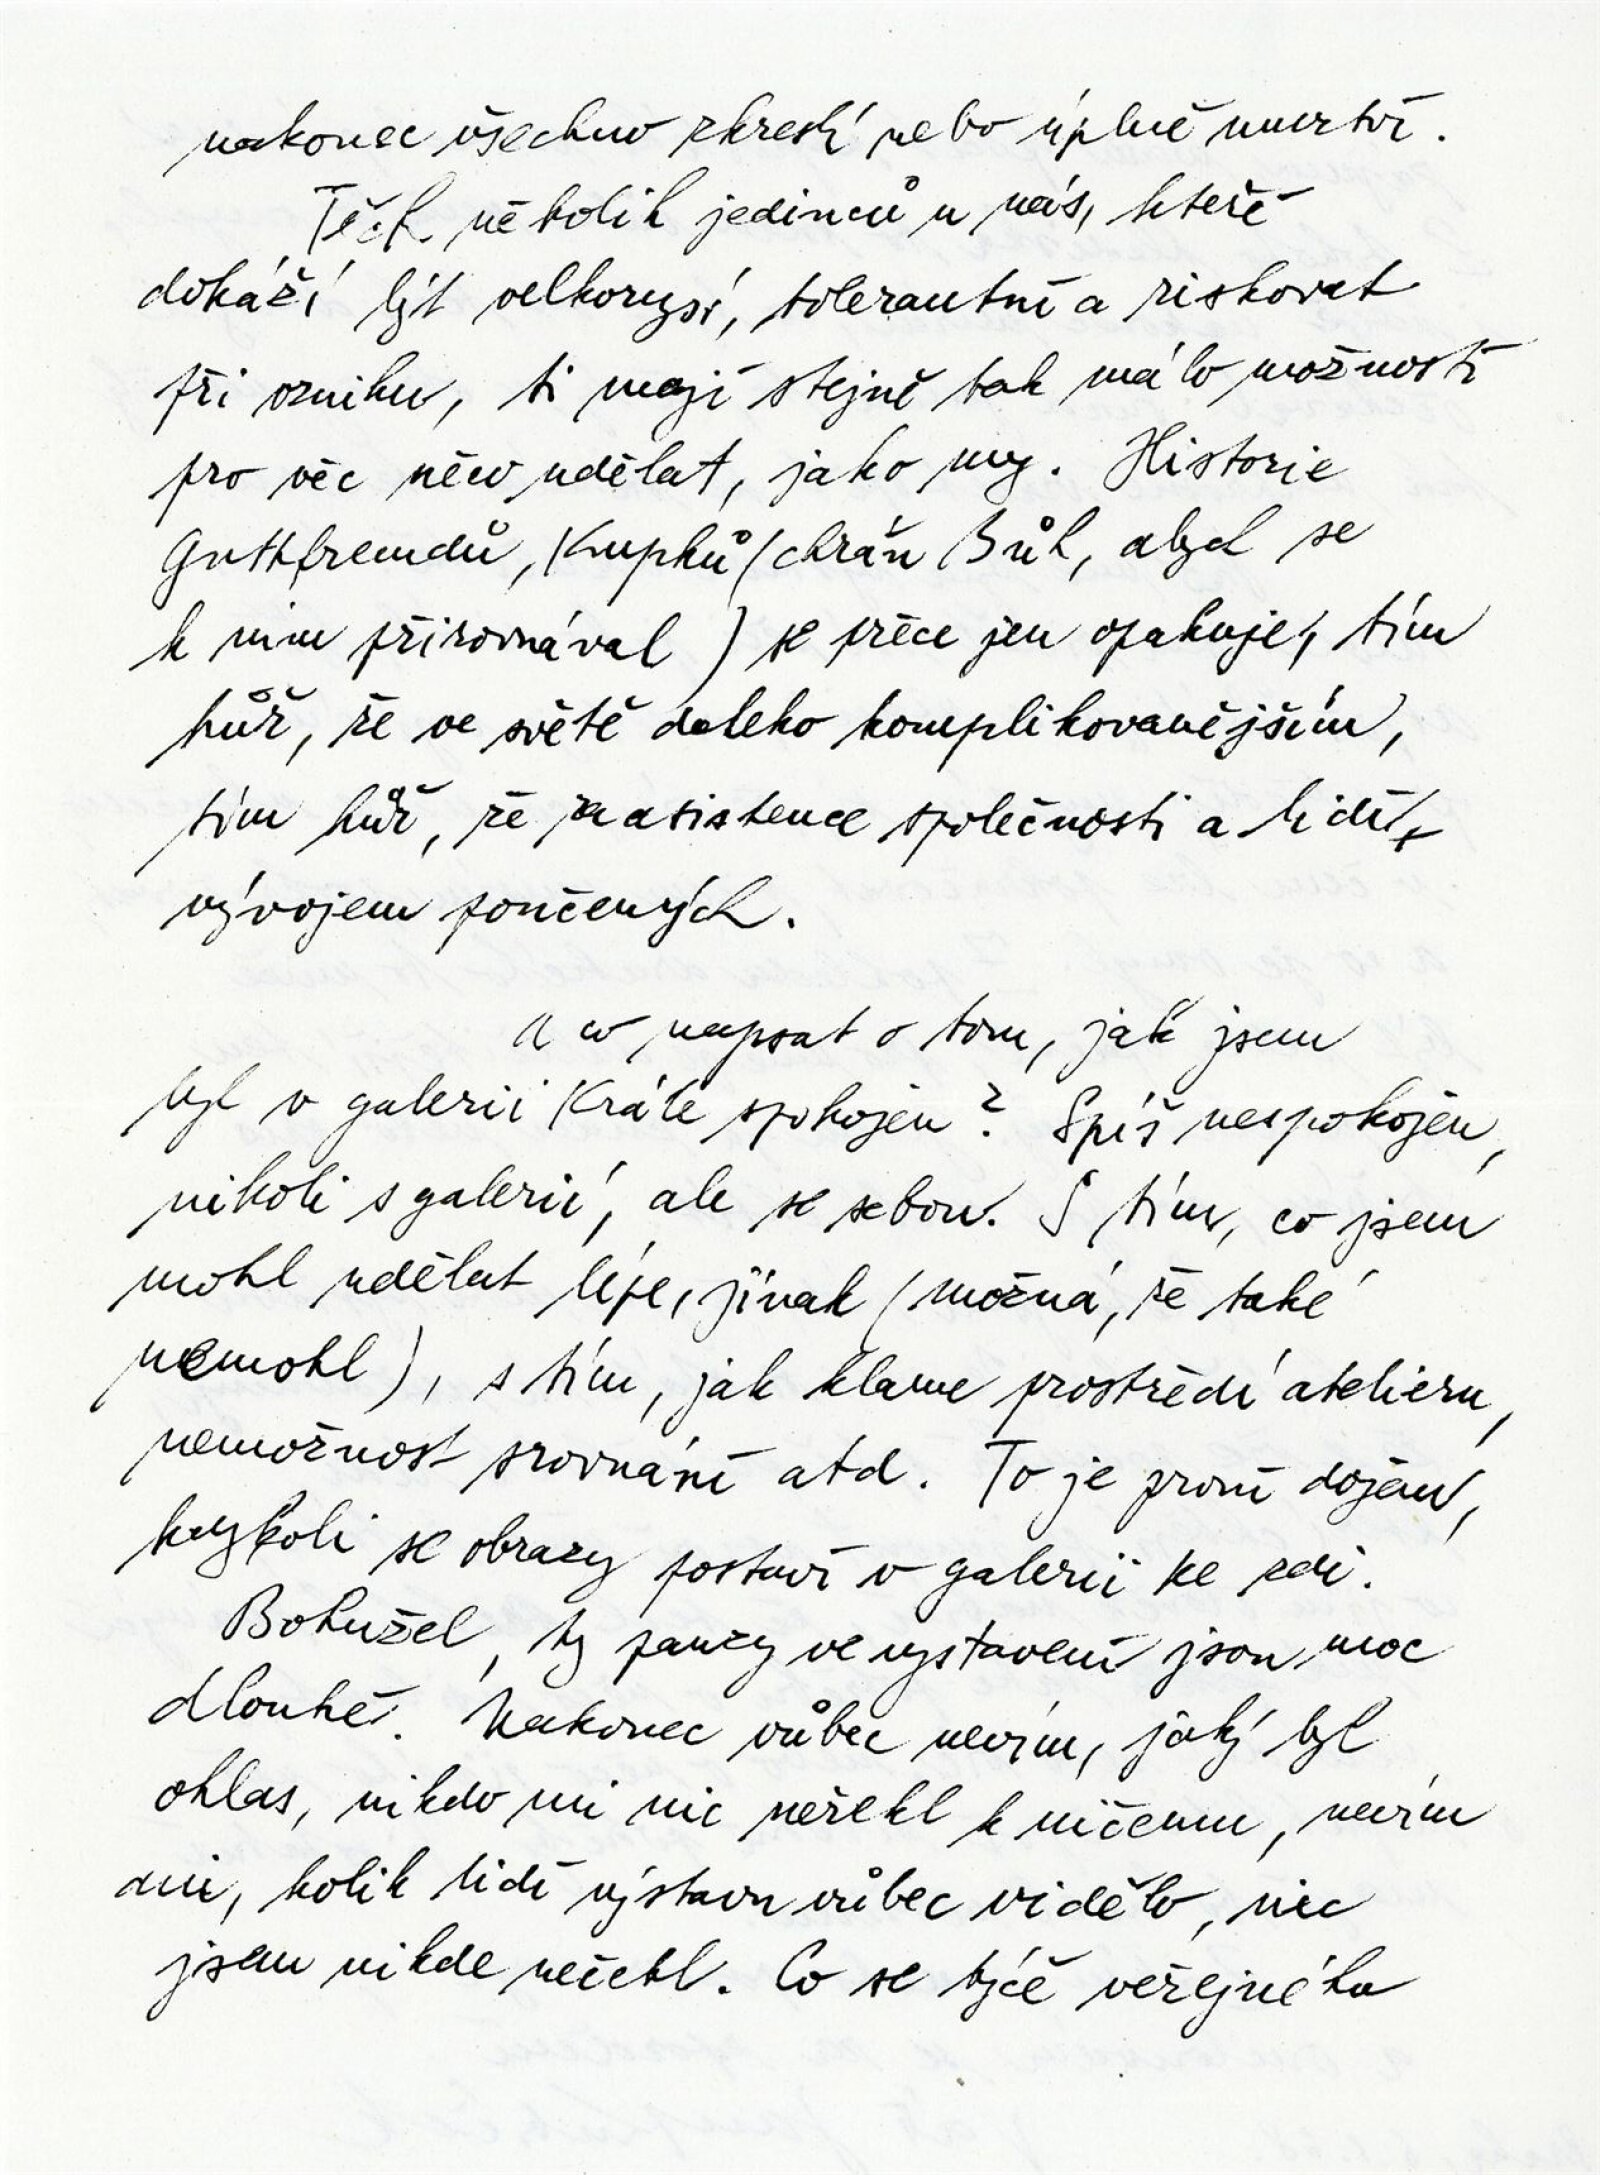 nakonec všechno zkreslí nebo úplně umrtví.
Těch několik jedinců u nás, kteří
dokáží být velkorysí, tolerantní a riskovat
při vzniku, ti mají stejně tak málo možností
pro věc něco udělat, jako my. Historie
Gutfreundů, Kupků (chraň Bůh, abych se
k nim přirovnával) se přece jen opakuje, tím
hůř, že ve světě daleko komplikovanějším,
tím hůř, že za asistence společnosti a lidí,
vývojem poučených.
A co napsat o tom, jak jsem
byl v galerii Krále spokojen? Spíš nespokojen,
nikoli s galerií, ale se sebou. S tím, co jsem
mohl udělat lépe, jinak (možná, že také
nemohl), s tím, jak klame prostředí ateliéru,
nemožnost srovnání atd. To je první dojem,
kdykoli se obrazy postaví v galerii ke zdi.
Bohužel, ty pauzy ve vystavení jsou moc
dlouhé. Nakonec vůbec nevím, jaký byl
ohlas, nikdo mi nic neřekl k ničemu, nevím
ani, kolik lidí výstavu vůbec vidělo, nic
jsem nikde nečetl. Co se týče veřejného